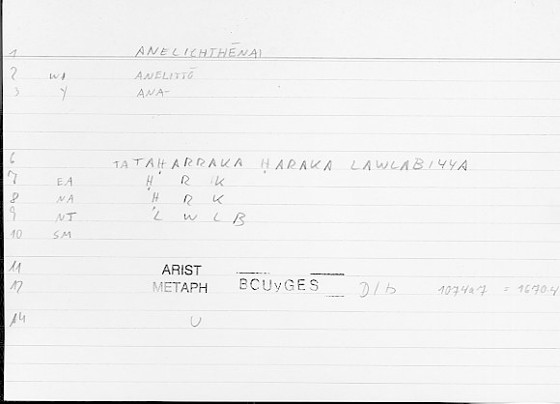 1 ANELICHTHĒNAI
2 WI ANELITTŌ
3 Y ANA-
6 TATAḤARRAKA ḤARAKA LAWLABIYYA
7 EA Ḥ R K
8 NA Ḥ R K
9 NT L W L B
10 SM
11 ARIST
12 METAPH BOUyGES D/b 1074a7 = 1670.4
14 U